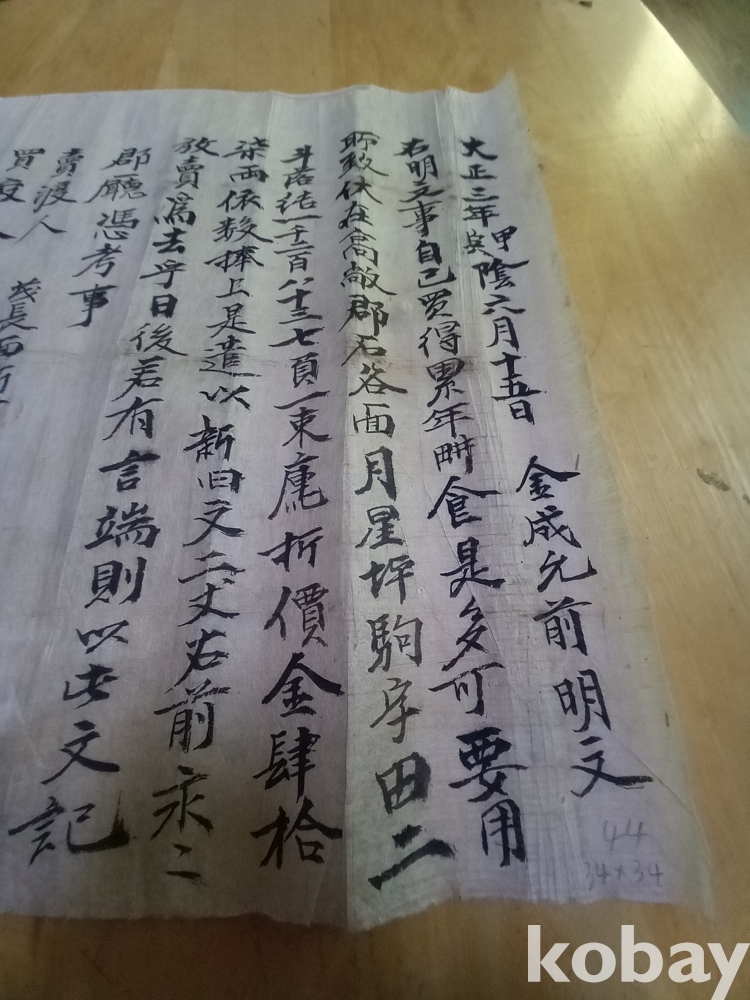 大正三年甲寅陰六月十五日 金成允前明文
右明文事自己買得累年畊食是多可要用
所致伏在高敞郡石谷面月星坪駒字田二
斗落結一千二百八十三七頁一束廤折價金肆拾
柒兩依數捧上是遣以新旧文二丈右前永〻
放賣爲去乎日後若有言端則以此文記
郡廳憑考事
賣渡人
買渡人 長面
44
34×34
kobay